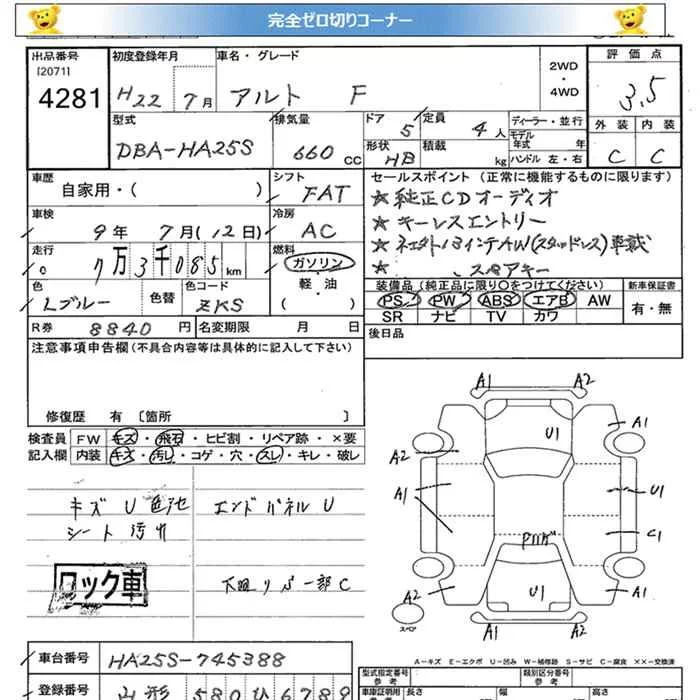 完全ゼロ切りコーナー
出品番号
[2071]
4281
初度登録年月
H22 7月
車名・グレード
アルト F
2WD
・
4WD
評価点
3.5
型式
DBA-HA25S
排気量
660 cc
ドア
5
定員
4人
ディーラー・並行
モデル年式 年
形状
HB
積載
kg
ハンドル 左・右
外装 内装
C C
車歴
自家用・( )
シフト
FAT
セールスポイント (正常に機能するものに限ります)
★純正CDオーディオ
★キーレスエントリー
★ネエクト13インチAW(スタッドレス)車載
★ スペアキー
車検
9年 7月(12日)
冷房
AC
走行
7万3千085km
燃料
ガソリン
・
軽・油
( )
色
Lブルー
色替
色コード
ZKS
装備品 (純正品に限り○をつけてください)
PS PW ABS エアB AW
SR ナビ TV カワ
新車保証書
有・無
R券 8840円
名変期限 月 日
後日品
注意事項申告欄 (不具合内容等は具体的に記入して下さい)
修復歴 有 〔箇所 〕
検査員記入欄
FW キズ・飛石・ヒビ割・リペア跡・×要
内装 キズ・汚レ・コゲ・穴・スレ・キレ・破レ
キズ U 色他
シート 汚れ
エンドパネル U
ロック車
下廻り サビ 一部 C
A1 A2
U1
A1
A2
A1
U1
C1
U1
A1
A1 A2
スペア
A-キズ E-エクボ U-凹み W-補修跡 S-サビ C-腐食 ××-交換済
車台番号
HA25S-745388
登録番号
山形 580 ひ 6789
型式指定番号
参考
類別区分番号
参考
車庫証明用
参考
長さ
幅
高さ